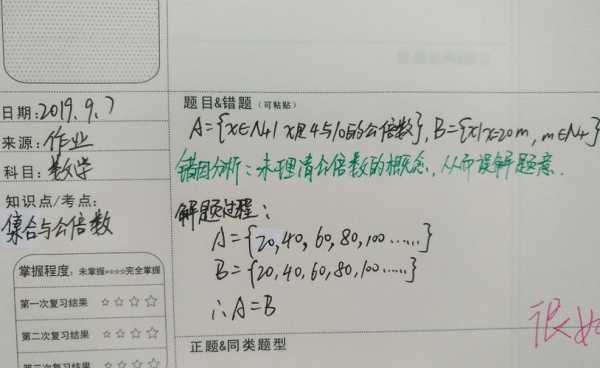 日期:2019.9.7
来源:作业
科目:数学
知识点/考点:
集合与公倍数
掌握程度:未掌握☆☆☆☆完全掌握
第一次复习结果 ☆☆☆☆
第二次复习结果 ☆☆☆☆
第三次复习结果 ☆☆☆☆
题目&错题(可粘贴)
A={x∈N+|x是4与10的公倍数},B={x|x=20m,m∈N+}
错因分析:未理清公倍数的概念,从而误解题意.
解题过程:
A={20,40,60,80,100……}
B={20,40,60,80,100……}
∴A=B
很好
正题&同类题型